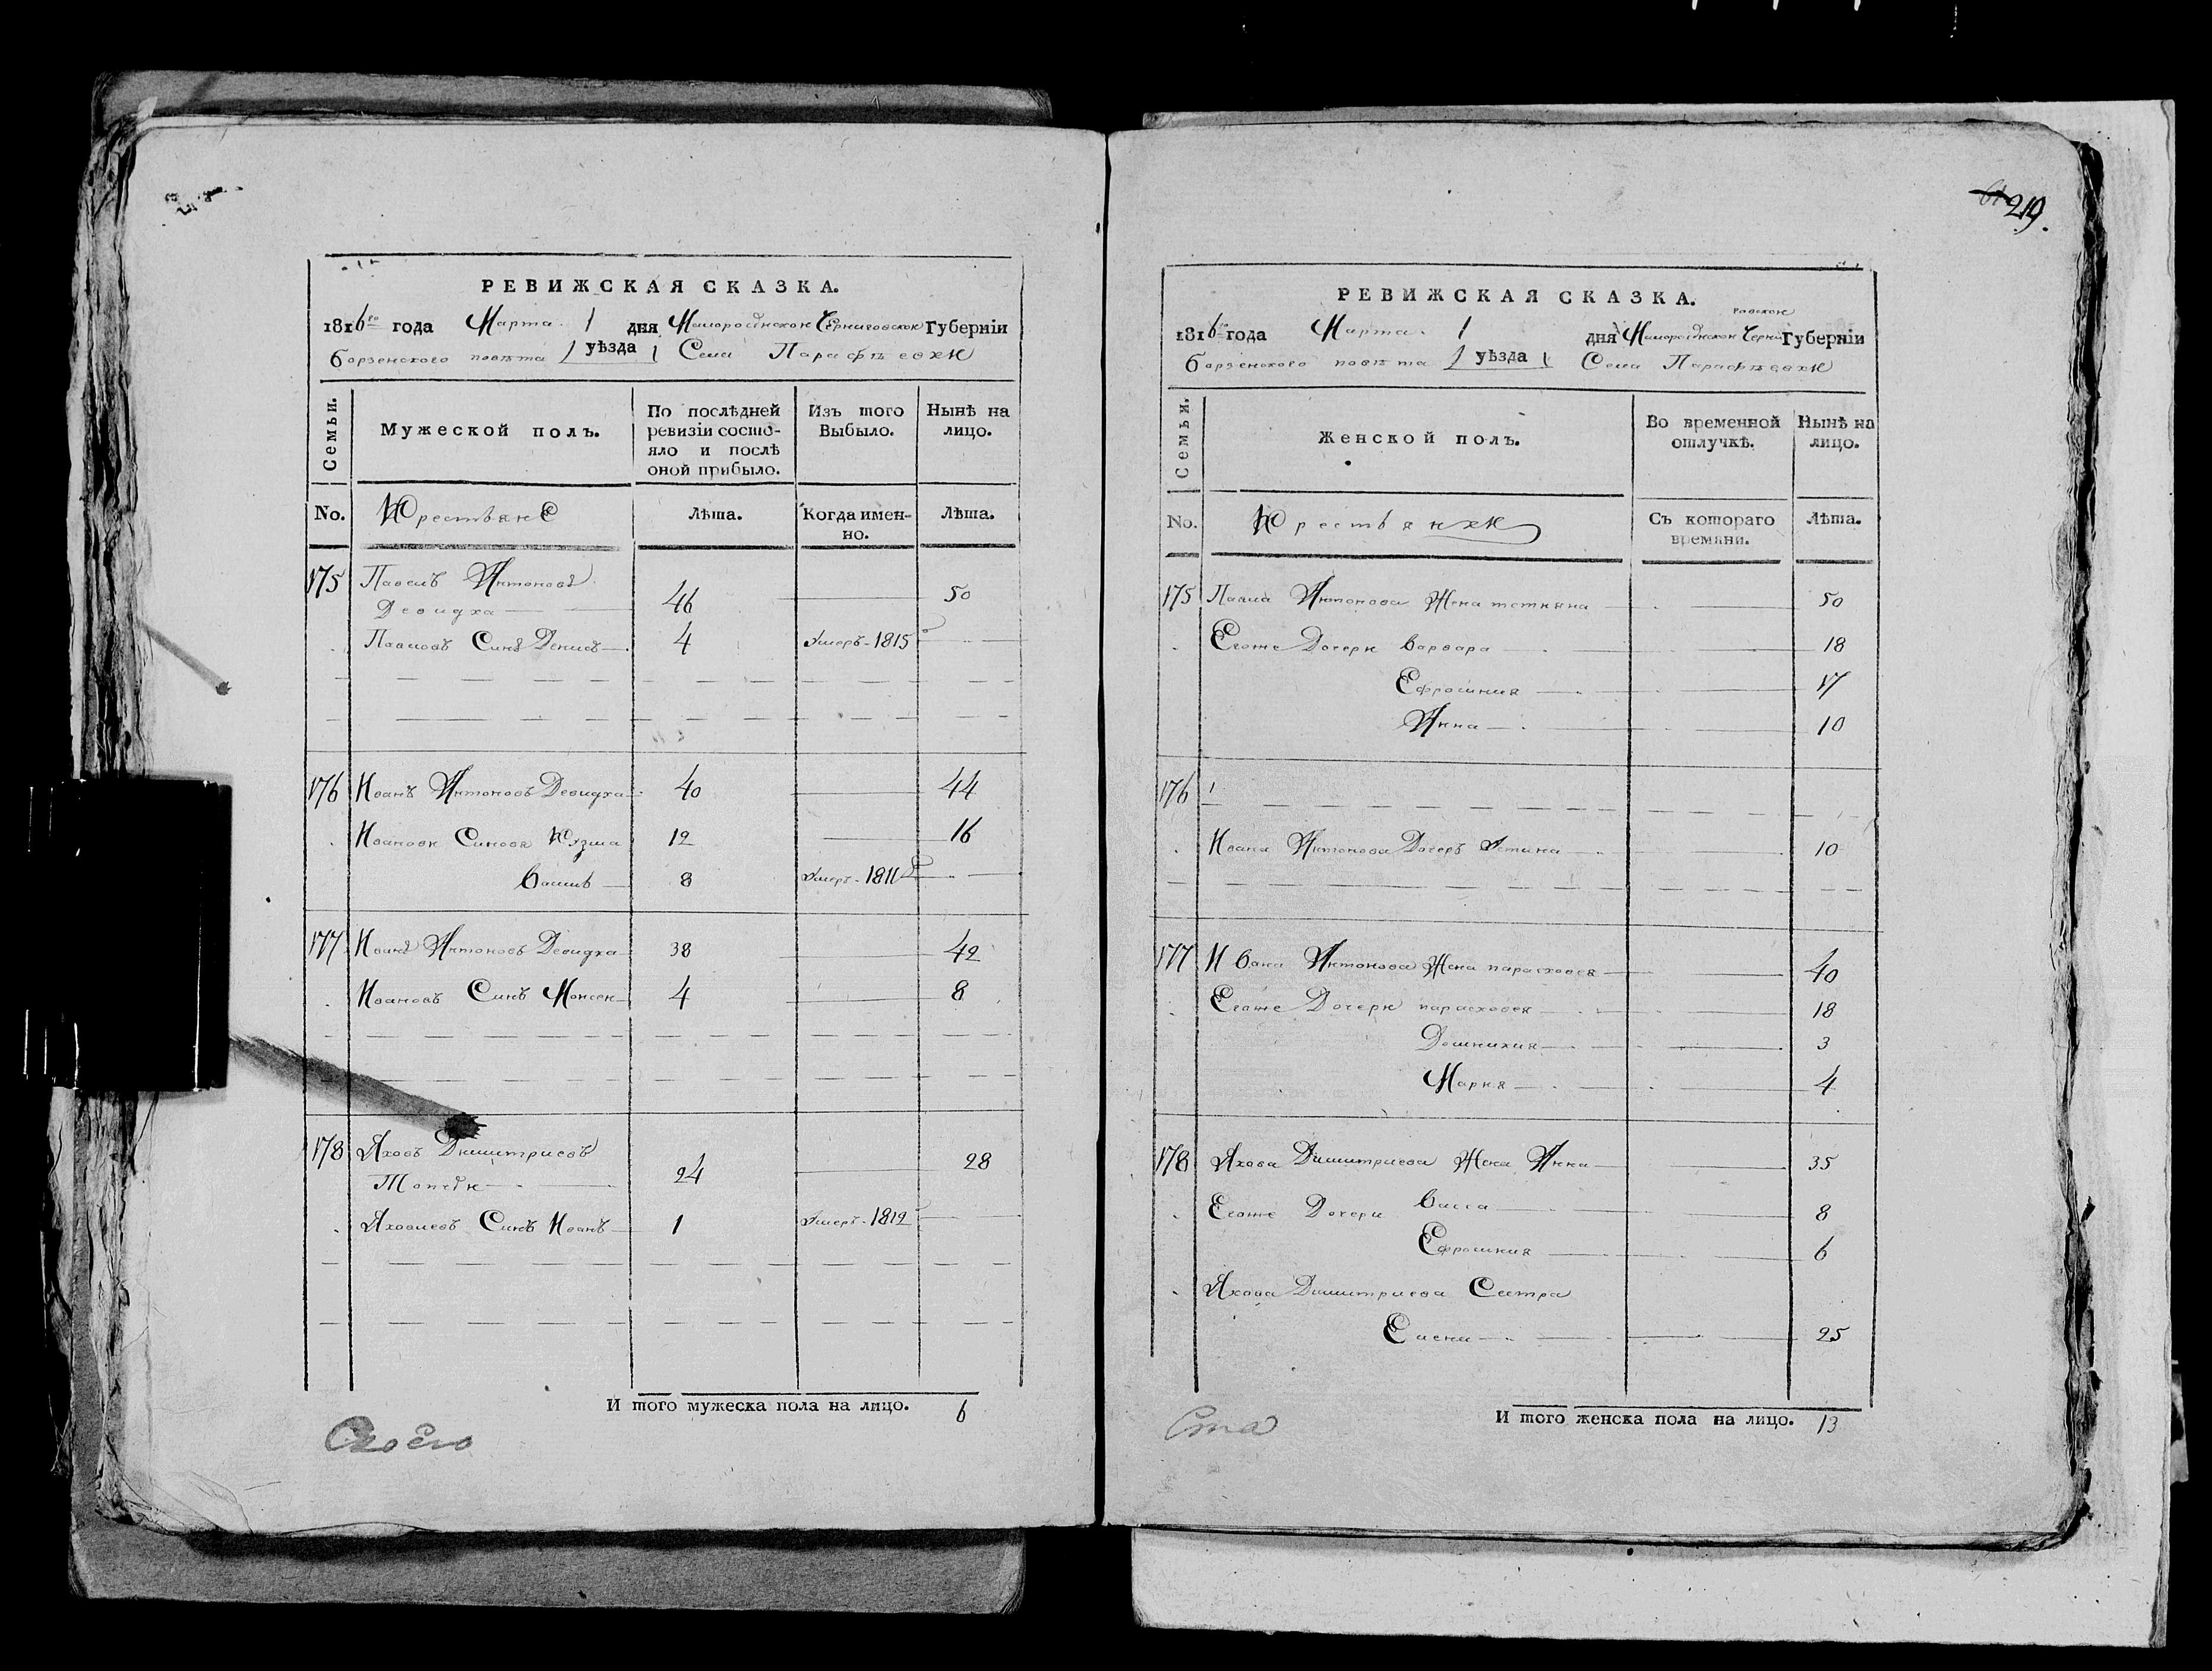 РЕВИЖСКАЯ СКАЗКА.
1816го года Марта 1 дня Малоросійской Черниговской Губерніи
борзенского повѣта уѣзда Села Парафѣевки
Семьи.
Мужеской полъ.
По послѣдней ревизіи состо-
яло и послѣ
оной прибыло.
Изъ того
Выбыло.
Нынѣ на
лицо.
No.
Крестьяне
Лѣта.
Когда имен-
но.
Лѣта.
175 Павелъ Антоновъ
Девидка 46 50
Павловъ Синъ Денисъ 4 Умеръ 1815
176 Иванъ Антоновъ Девидка 40 44
Ивановы Синовя Кузма 12 16
Василь 8 Умеръ 1811
177 Иванъ Антоновъ Девидка 38 42
Ивановъ Синъ Моисей 4 8
178 Яковъ Димитриевъ
24 28
Яковлевъ Синъ Иванъ 1 Умеръ 1812
И того мужеска пола на лицо. 6
219.
РЕВИЖСКАЯ СКАЗКА.
1816го года Марта 1 дня Малоросійской Черниговской Губерніи
борзенского повѣта уѣзда Села Парафѣевки
Семьи.
Женской полъ.
Во временной
отлучкѣ.
Нынѣ на
лицо.
No.
Крестьянки
Съ котораго
времяни.
Лѣта.
175 Павла Антонова Жена тетияна 50
Егоже Дочери Варвара 18
Ефросиния 17
Анна 10
176
Ивана Антонова Дочеръ Устина 10
177 Ивана Антонова Жена парасковея 40
Егоже Дочери парасковея 18
Домникия 3
Мария 4
178 Якова Димитриева Жена Анна 35
Егоже Дочери Васса 8
Ефросиния 6
Якова Димитриева Сестра
Елена 25
Ста
И того женска пола на лицо. 13